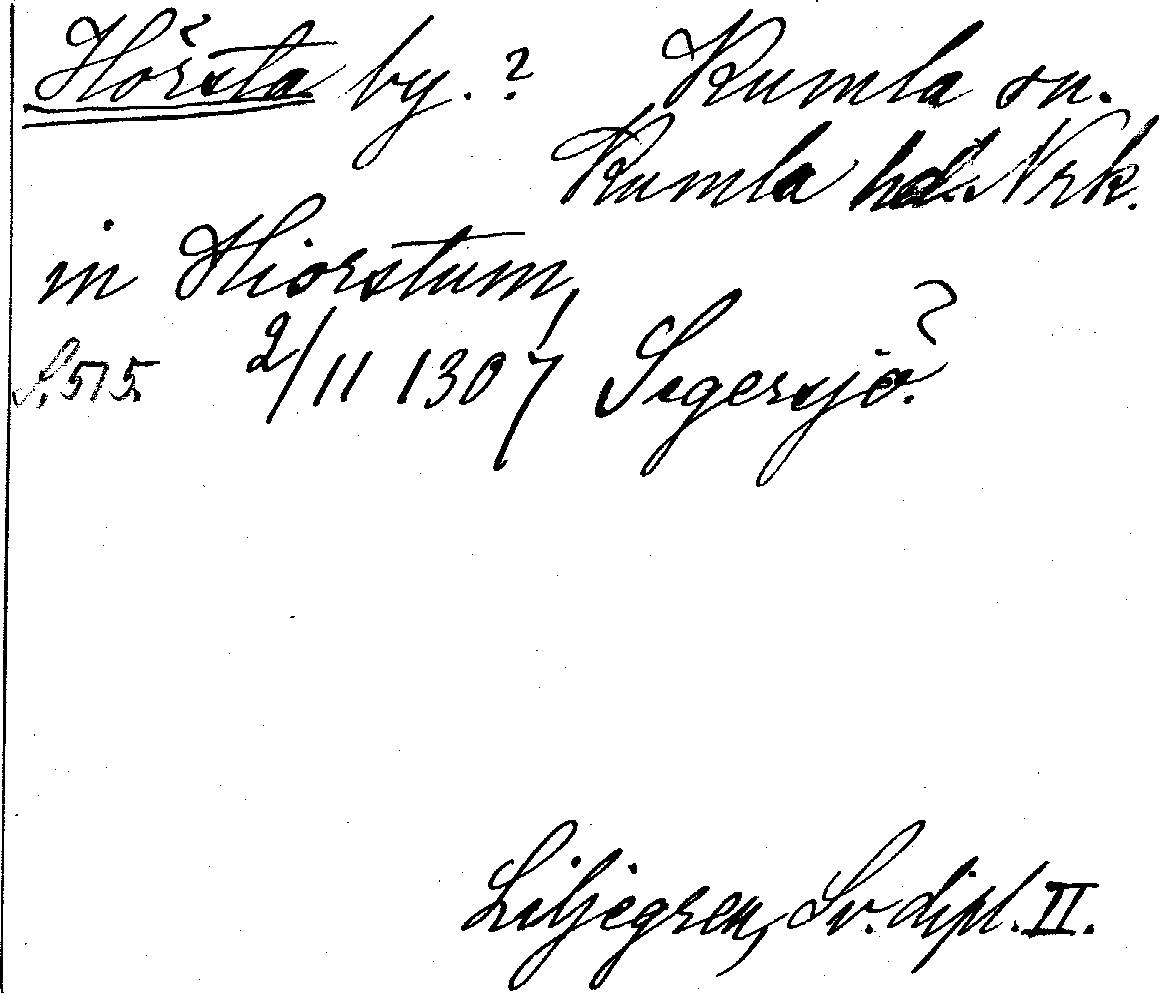 Hörsta by. ? Kumla sn.
Kumla hd. Nrk.
in Hiorstum,
S. 515. 2/11 1307 Segersjö.
Liljegren, Sv. dipl. II.